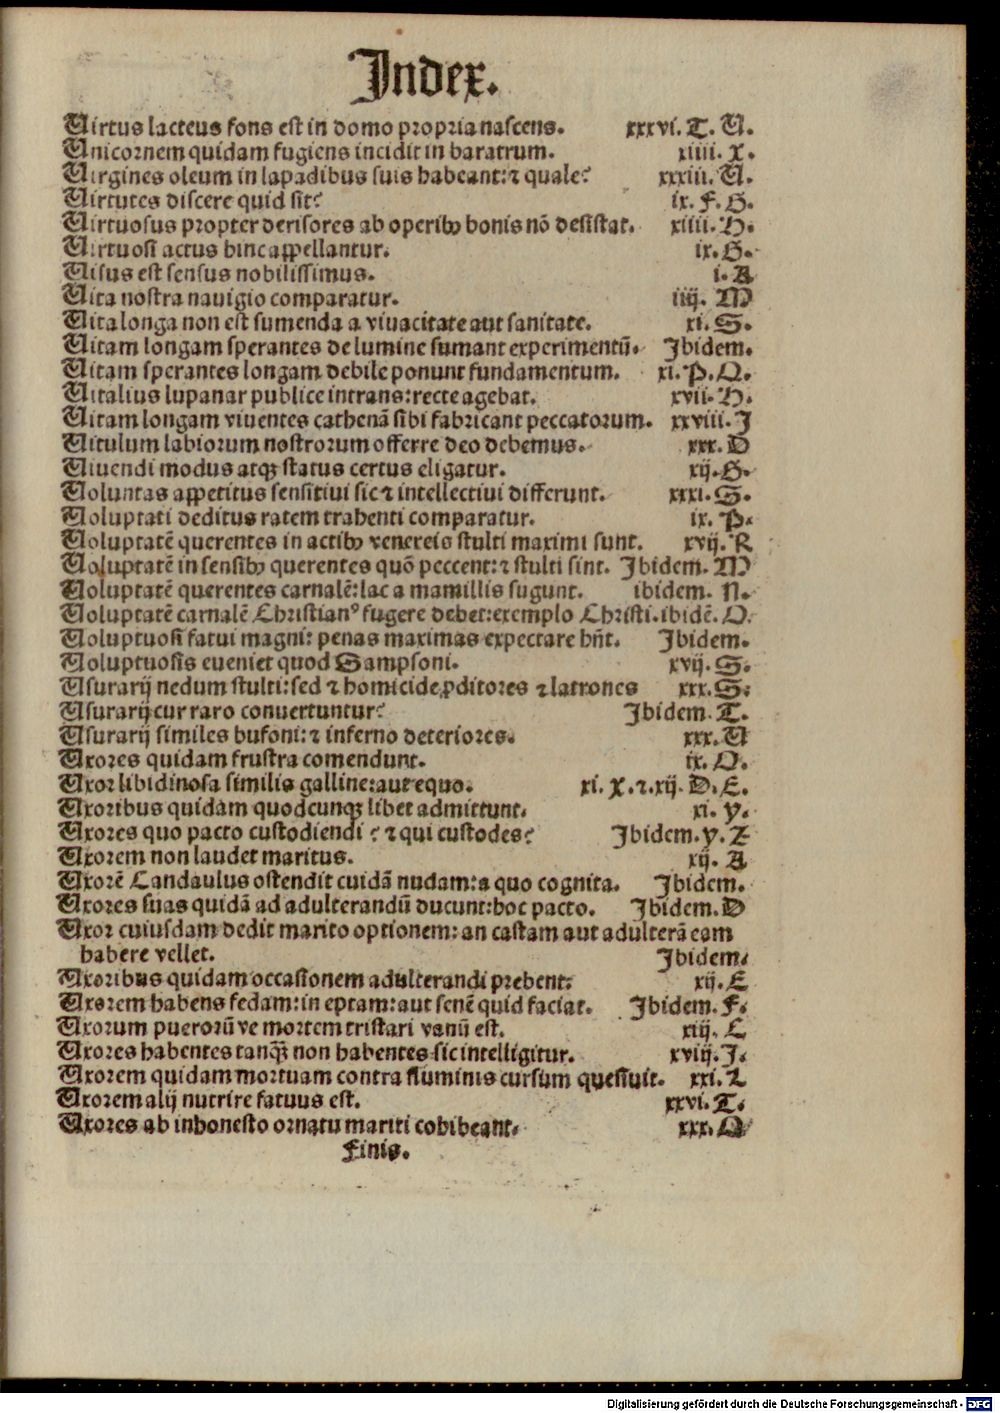 Index.
Uirtus lacteus fons est in domo propria nascens. xxxvi. T. U.
Unicornem quidam fugiens incidit in baratrum. xiiii. X.
Uirgines oleum in lāpadibus suis habeant: ⁊ quale? xxxiii. U.
Uirtutes discere quid sit? ix. F. G.
Uirtuosus propter derisores ab operibꝫ bonis nō desistat. xiiii. H.
Uirtuosi actus hinc appellantur. ix. G.
Uisus est sensus nobilissimus. i. A
Uita nostra nauigio comparatur. iiij. M
Uita longa non est sumenda a viuacitate aut sanitate. xi. S.
Uitam longam sperantes de lumine sumant experimentū. Ibidem.
Uitam sperantes longam debile ponunt fundamentum. xi. P. Q.
Uitalius lupanar publice intrans: recte agebat. xvii. H.
Uitam longam viuentes cathenā sibi fabricant peccatorum. xxviii. I
Uitulum labiorum nostrorum offerre deo debemus. xxx. D
Uiuendi modus atqꝫ status certus eligatur. xij. G.
Uoluntas appetitus sensitiui sic ⁊ intellectiui differunt. xxxi. S.
Uoluptati deditus ratem trahenti comparatur. ix. P.
Uoluptatē querentes in actibꝫ venereis stulti maximi sunt. xvij. R
Uoluptatē in sensibꝫ querentes quō peccent: ⁊ stulti sint. Ibidem. M
Uoluptatē querentes carnalē: lac a mamillis sugunt. ibidem. N.
Uoluptatē carnalē Christianꝰ fugere debet: exemplo Christi. ibidē. O.
Uoluptuosi fatui magni: penas maximas expectare hn̄t. Ibidem.
Uoluptuosis eueniet quod Sampsoni. xvij. S.
Usurarij nedum stulti: sed ⁊ homicide, ꝓditores ⁊ latrones xxx. S.
Usurarij cur raro conuertuntur? Ibidem. T.
Usurarij similes bufoni: ⁊ inferno deteriores. xxx. U
Uxores quidam frustra comendunt. ix. O.
Uxor libidinosa similis galline: aut equo. xi. X. ⁊. xij. D. E.
Uxoribus quidam quodcunqꝫ libet admittunt. xi. y.
Uxores quo pacto custodiendi? ⁊ qui custodes? Ibidem. y. Z
Uxorem non laudet maritus. xij. A
Uxorē Candaulus ostendit cuidā nudam: a quo cognita. Ibidem.
Uxores suas quidā ad adulterandū ducunt: hoc pacto. Ibidem. D
Uxor cuiusdam dedit marito optionem: an castam aut adulterā eam
habere vellet. Ibidem.
Uxoribus quidam occasionem adulterandi prebent: xij. E
Uxorem habens fedam: ineptam: aut senē quid faciat. Ibidem. F.
Uxorum puerorū ve mortem tristari vanū est. xiij. C
Uxores habentes tanqꝫ non habentes sic intelligitur. xviij. I.
Uxorem quidam mortuam contra fluminis cursum quesiuit. xxi. L
Uxorem alij nutrire fatuus est. xxvi. T.
Uxores ab inhonesto ornatu mariti cohibeant. xxx. Q
Finis.
Digitalisierung gefördert durch die Deutsche Forschungsgemeinschaft - DFG